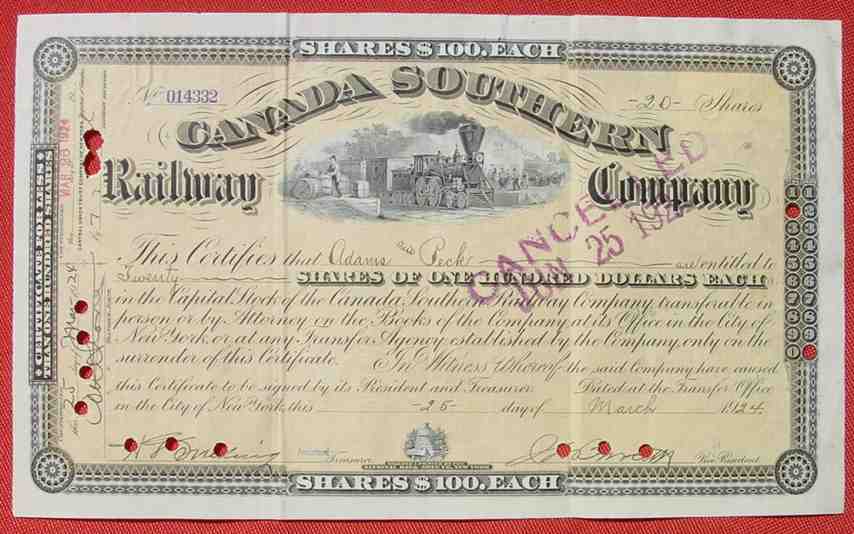 SHARES $100. EACH
No 014332
-20- Shares
CANADA SOUTHERN
Railway Company
This Certifies that Adams and Peck are entitled to
Twenty SHARES OF ONE HUNDRED DOLLARS EACH
in the Capital Stock of the Canada Southern Railway Company transferable in
person or by Attorney on the Books of the Company at its Office in the City of
New York or at any Transfer Agency established by the Company only on the
surrender of this Certificate. In Witness Whereof the said Company have caused
this Certificate to be signed by its President and Treasurer. Dated at the Transfer Office
in the City of New York this -25- day of March 1924
Treasurer
Vice President
SHARES $100. EACH
CERTIFICATE FOR LESS
THAN ONE HUNDRED SHARES
MAR 26 1924
CANCELLED
25 192
1 1
2
3
4
5
6
7
8
9
0